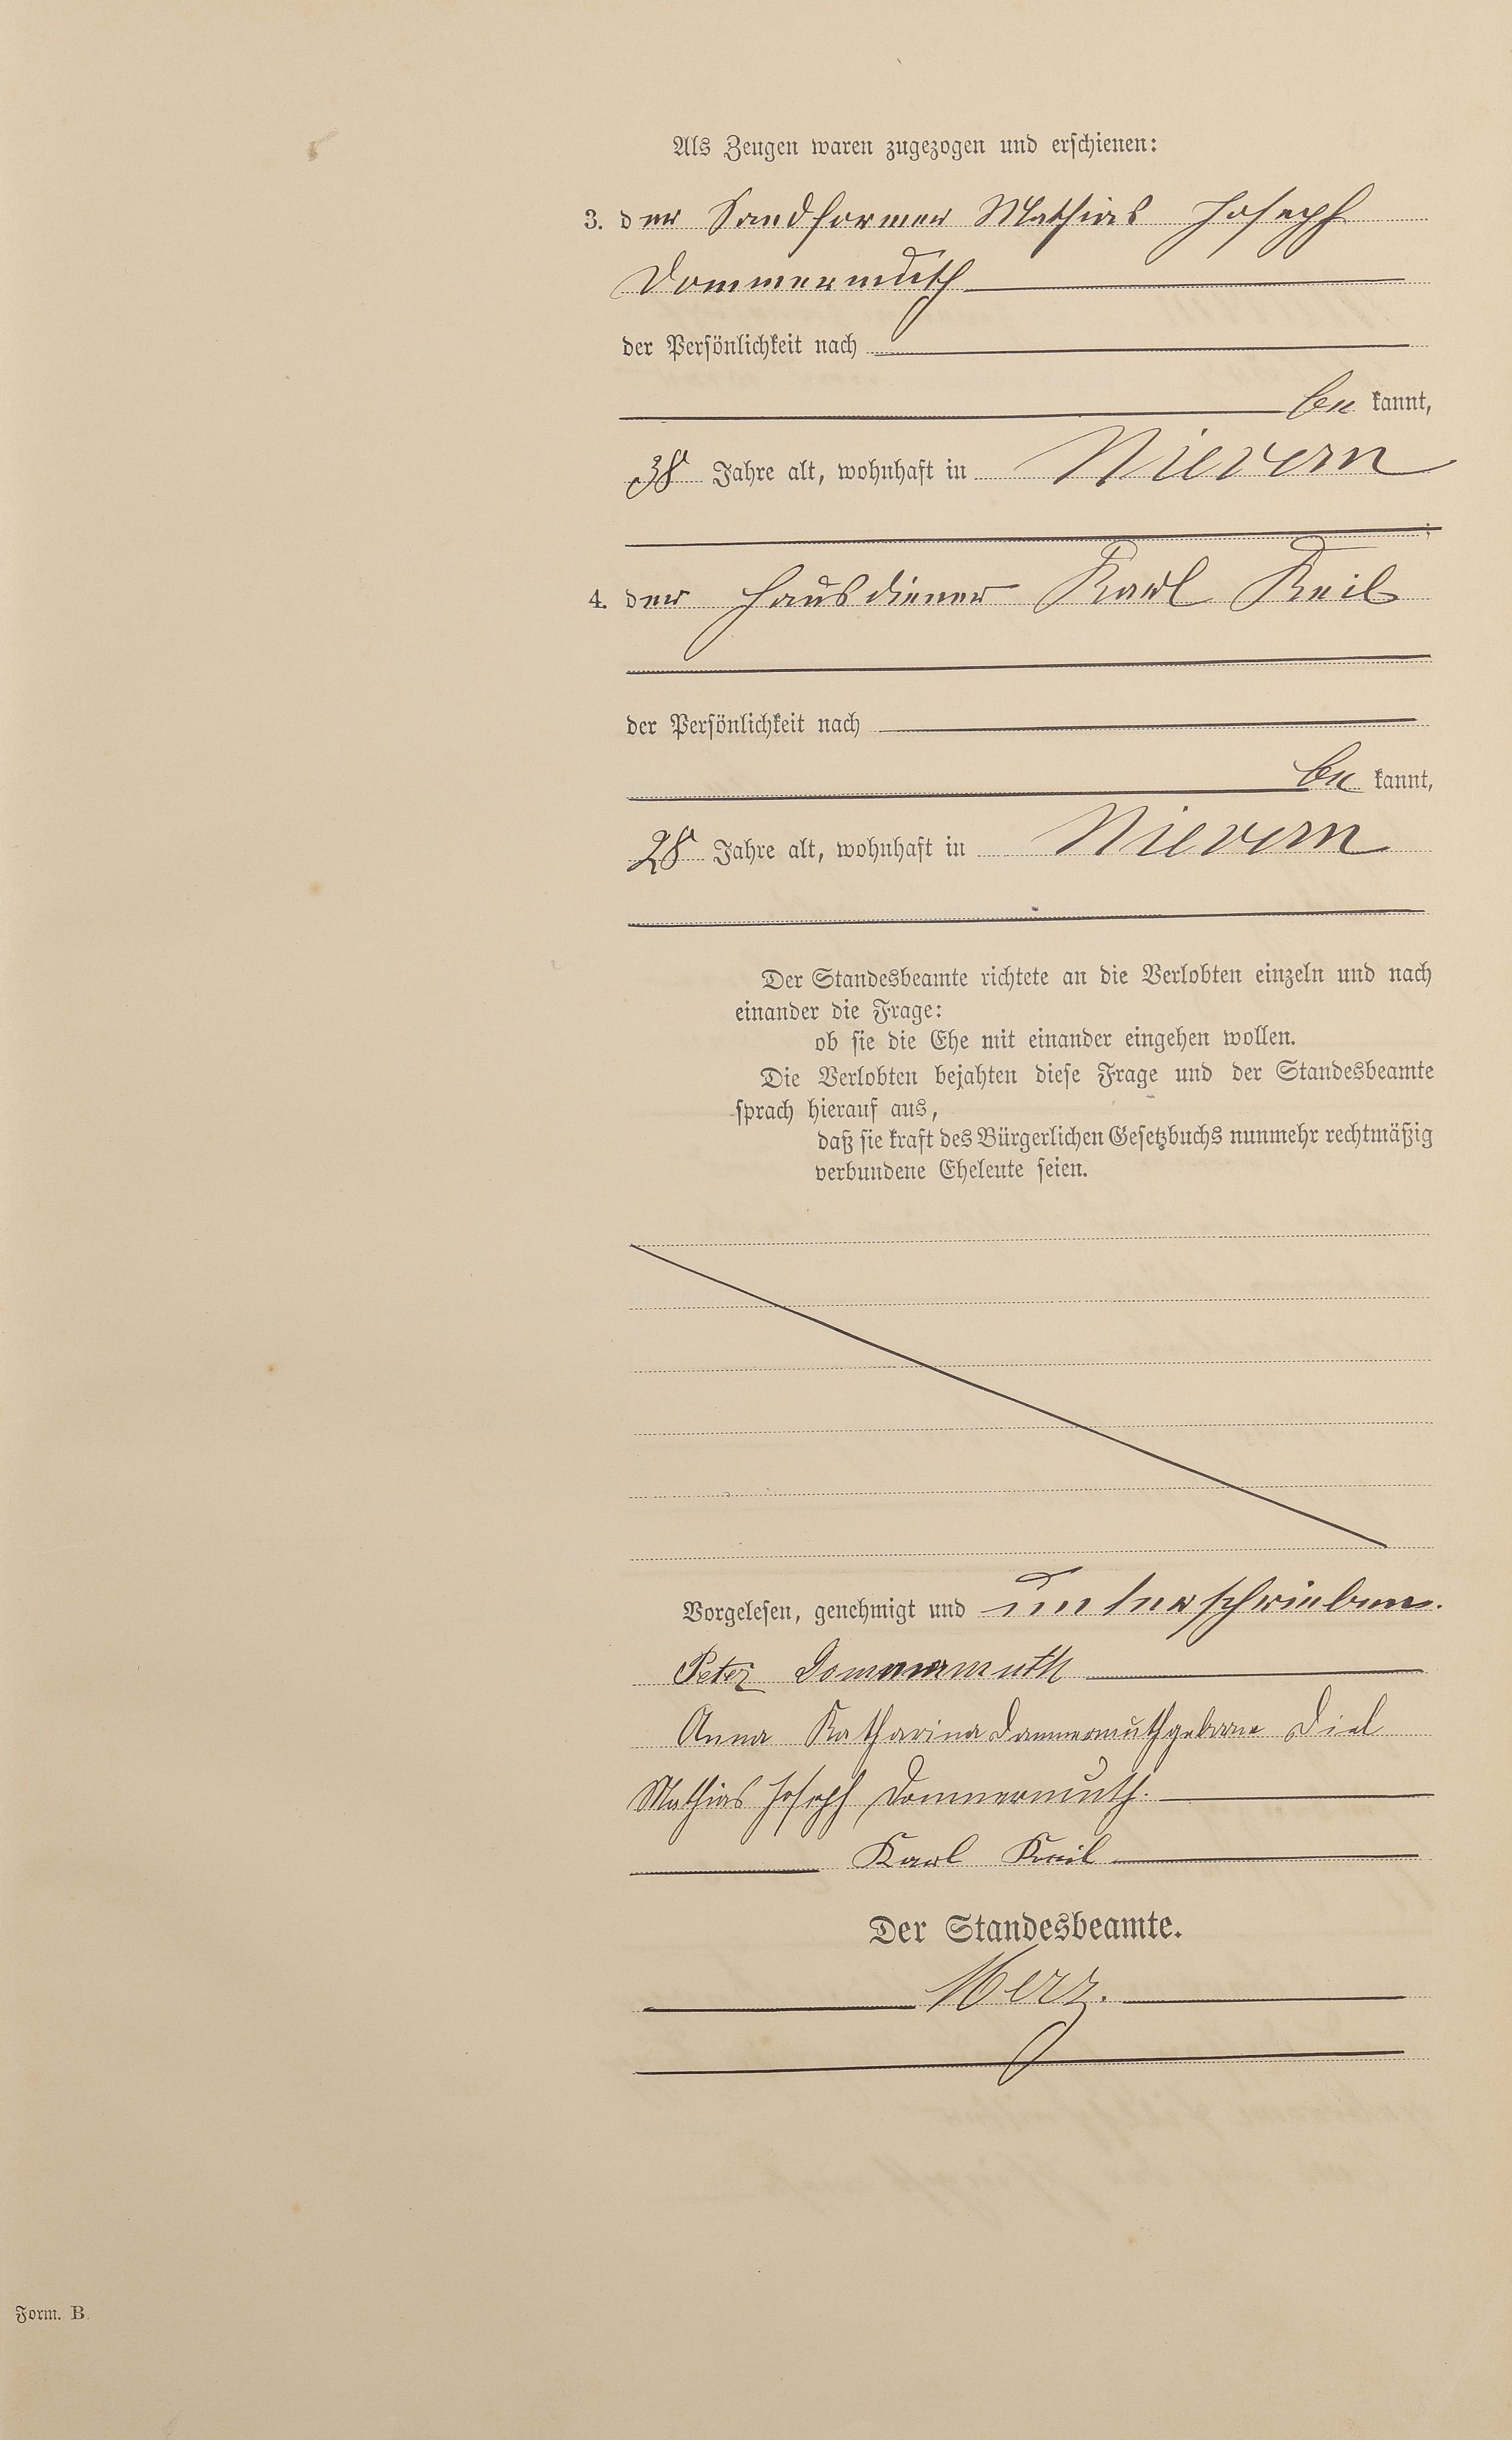 Als Zeugen waren zugezogen und erschienen:
3. der Sandformer Mathias Joseph
Dommermuth
der Persönlichkeit nach
be kannt,
38 Jahre alt, wohnhaft in Nievern
;
4. der Hausdiener Karl Keil
der Persönlichkeit nach
be kannt,
28 Jahre alt, wohnhaft in Nievern
Der Standesbeamte richtete an die Verlobten einzeln und nach
einander die Frage:
ob sie die Ehe mit einander eingehen wollen.
Die Verlobten bejahten diese Frage und der Standesbeamte
sprach hierauf aus,
daß sie kraft des Bürgerlichen Gesetzbuchs nunmehr rechtmäßig
verbundene Eheleute seien.
Vorgelesen, genehmigt und unterschrieben.
Peter Dommermuth
Anna Katharina Dommermuth geborne Diel
Mathias Joseph Dommermuth.
Karl Keil
Der Standesbeamte.
Merz.
Form. B.